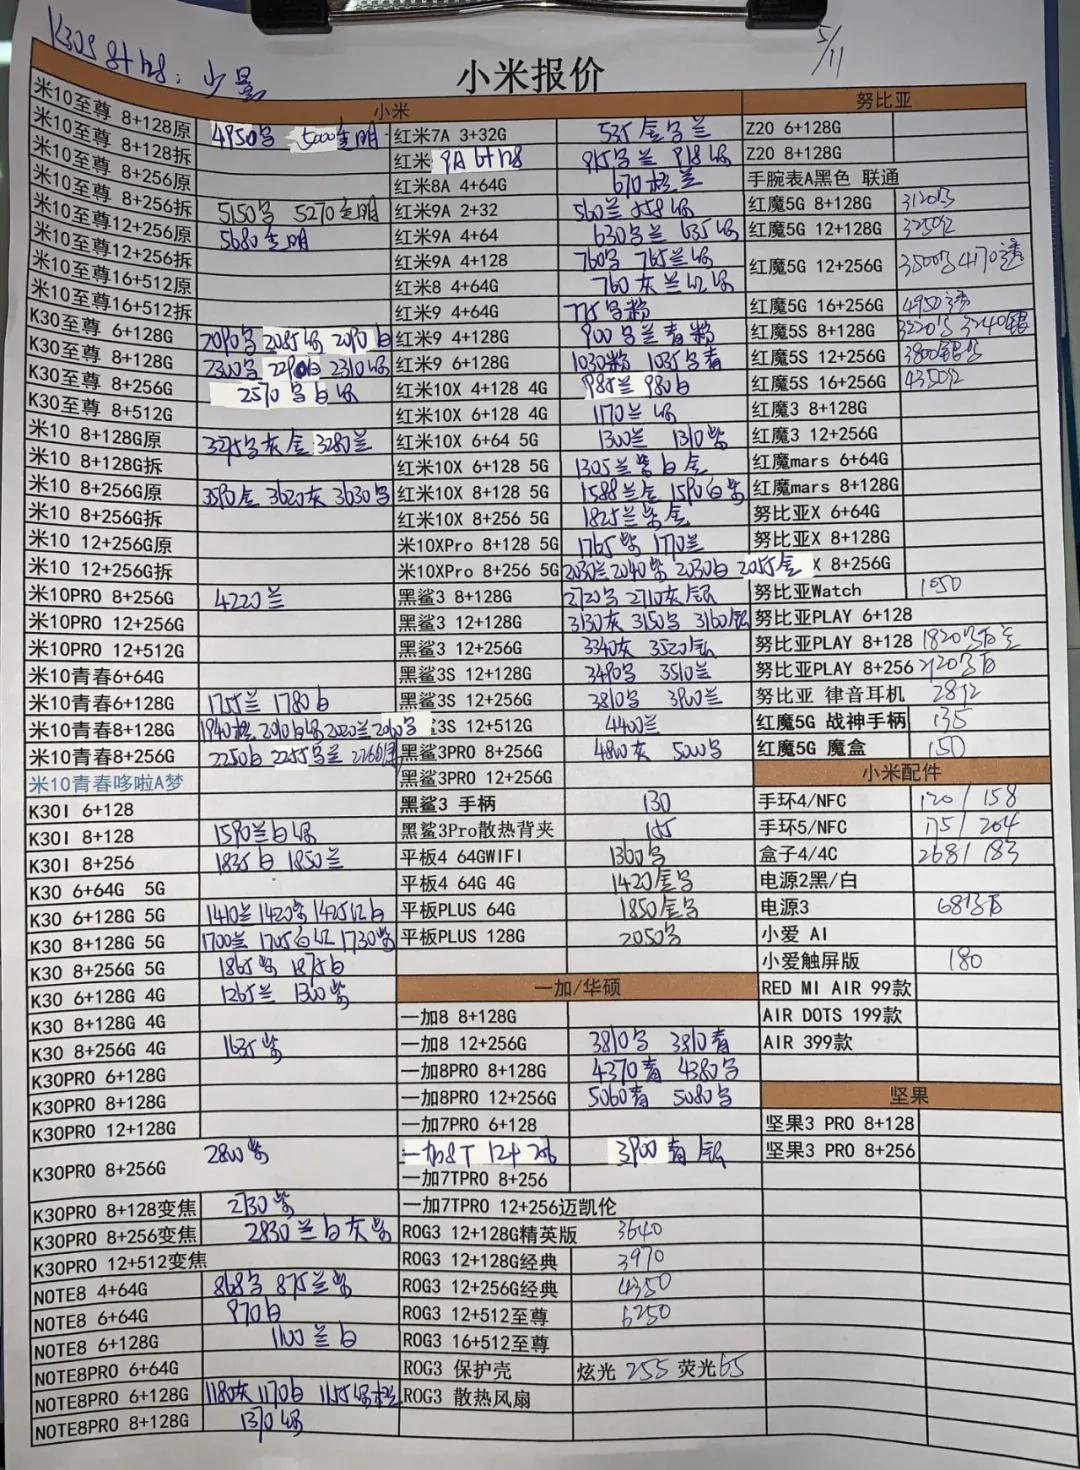 K30S 8+128:
5/11
小米报价
小米
米10至尊 8+128原 4950 5000
米10至尊 8+128拆
米10至尊 8+256原
米10至尊 8+256拆 5150 5270
米10至尊 12+256原 5680
米10至尊 12+256拆
米10至尊16+512原
米10至尊16+512拆
K30至尊 6+128G 2090 2085绿 2090白
K30至尊 8+128G 2300 2290白 2310绿
K30至尊 8+256G 2570 白绿
K30至尊 8+512G
米10 8+128G原 灰金 3280兰
米10 8+128G拆
米10 8+256G原 3590金 3620灰 3630
米10 8+256G拆
米10 12+256G原
米10 12+256G拆
米10PRO 8+256G 4220兰
米10PRO 12+256G
米10PRO 12+512G
米10青春6+64G
米10青春6+128G 1755兰 1780白
米10青春8+128G
米10青春8+256G 2250白 2255
米10青春哆啦A梦
K30I 6+128
K30I 8+128 1590兰白绿
K30I 8+256 1835白 1850兰
K30 6+64G 5G
K30 6+128G 5G 1410兰 1420紫 1425红白
K30 8+128G 5G 1700兰 1705白红 1730紫
K30 8+256G 5G 1865紫 1875白
K30 6+128G 4G 1265兰 1300紫
K30 8+128G 4G
K30 8+256G 4G 1635紫
K30PRO 6+128G
K30PRO 8+128G
K30PRO 12+128G
K30PRO 8+256G 2800紫
K30PRO 8+128变焦 2730紫
K30PRO 8+256变焦 2830兰白灰紫
K30PRO 12+512变焦
NOTE8 4+64G 868 875兰紫
NOTE8 6+64G 970白
NOTE8 6+128G 1100兰白
NOTE8PRO 6+64G
NOTE8PRO 6+128G 1180灰 1170白 1155绿橙
NOTE8PRO 8+128G 1370绿
红米7A 3+32G 535
红米 9A 6+128 915 兰 918绿
红米8A 4+64G 670橙兰
红米9A 2+32 560兰 558绿
红米9A 4+64 630 兰 635绿
红米9A 4+128 760 765兰绿
红米8 4+64G 760灰兰红绿
红米9 4+64G 775 粉
红米9 4+128G 900 兰青粉
红米9 6+128G 1030粉 1035 青
红米10X 4+128 4G 985兰 980白
红米10X 6+128 4G 1170兰绿
红米10X 6+64 5G 1300兰 1310紫
红米10X 6+128 5G 1305兰紫白金
红米10X 8+128 5G 1588兰金 1590白紫
红米10X 8+256 5G 1825兰紫金
米10XPro 8+128 5G 1765紫 1770兰
米10XPro 8+256 5G 2030兰 2040紫 2030白 2055金
黑鲨3 8+128G 2720 2710灰银
黑鲨3 12+128G 3130灰 3150 3160银
黑鲨3 12+256G 3340灰 3520银
黑鲨3S 12+128G 3490 3510兰
黑鲨3S 12+256G 3810 3900兰
3S 12+512G 4400兰
黑鲨3PRO 8+256G 4800灰 5000
黑鲨3PRO 12+256G
黑鲨3 手柄 130
黑鲨3Pro散热背夹
平板4 64GWIFI 1360
平板4 64G 4G 1420金
平板PLUS 64G 1850金
平板PLUS 128G 2050
一加/华硕
一加8 8+128G
一加8 12+256G 3810 3810青
一加8PRO 8+128G 4370青 4380
一加8PRO 12+256G 5060青 5080
一加7PRO 6+128
一加8T 12+256 3900青银
一加7TPRO 8+256
一加7TPRO 12+256迈凯伦
ROG3 12+128G精英版 3640
ROG3 12+128G经典 3970
ROG3 12+256G经典 4350
ROG3 12+512至尊 6250
ROG3 16+512至尊
ROG3 保护壳 炫光 255 荧光65
ROG3 散热风扇
努比亚
Z20 6+128G
Z20 8+128G
手腕表A黑色 联通
红魔5G 8+128G 3120
红魔5G 12+128G 3250红
红魔5G 12+256G 4170透
红魔5G 16+256G 4950透
红魔5S 8+128G 3220 3240银
红魔5S 12+256G 3800银
红魔5S 16+256G 4350红
红魔3 8+128G
红魔3 12+256G
红魔mars 6+64G
红魔mars 8+128G
努比亚X 6+64G
努比亚X 8+128G
X 8+256G
努比亚Watch 1050
努比亚PLAY 6+128
努比亚PLAY 8+128 1820
努比亚PLAY 8+256
努比亚 律音耳机
红魔5G 战神手柄 135
红魔5G 魔盒 150
小米配件
手环4/NFC 120/158
手环5/NFC 175/204
盒子4/4C 268/183
电源2黑/白
电源3
小爱 AI
小爱触屏版 180
RED MI AIR 99款
AIR DOTS 199款
AIR 399款
坚果
坚果3 PRO 8+128
坚果3 PRO 8+256